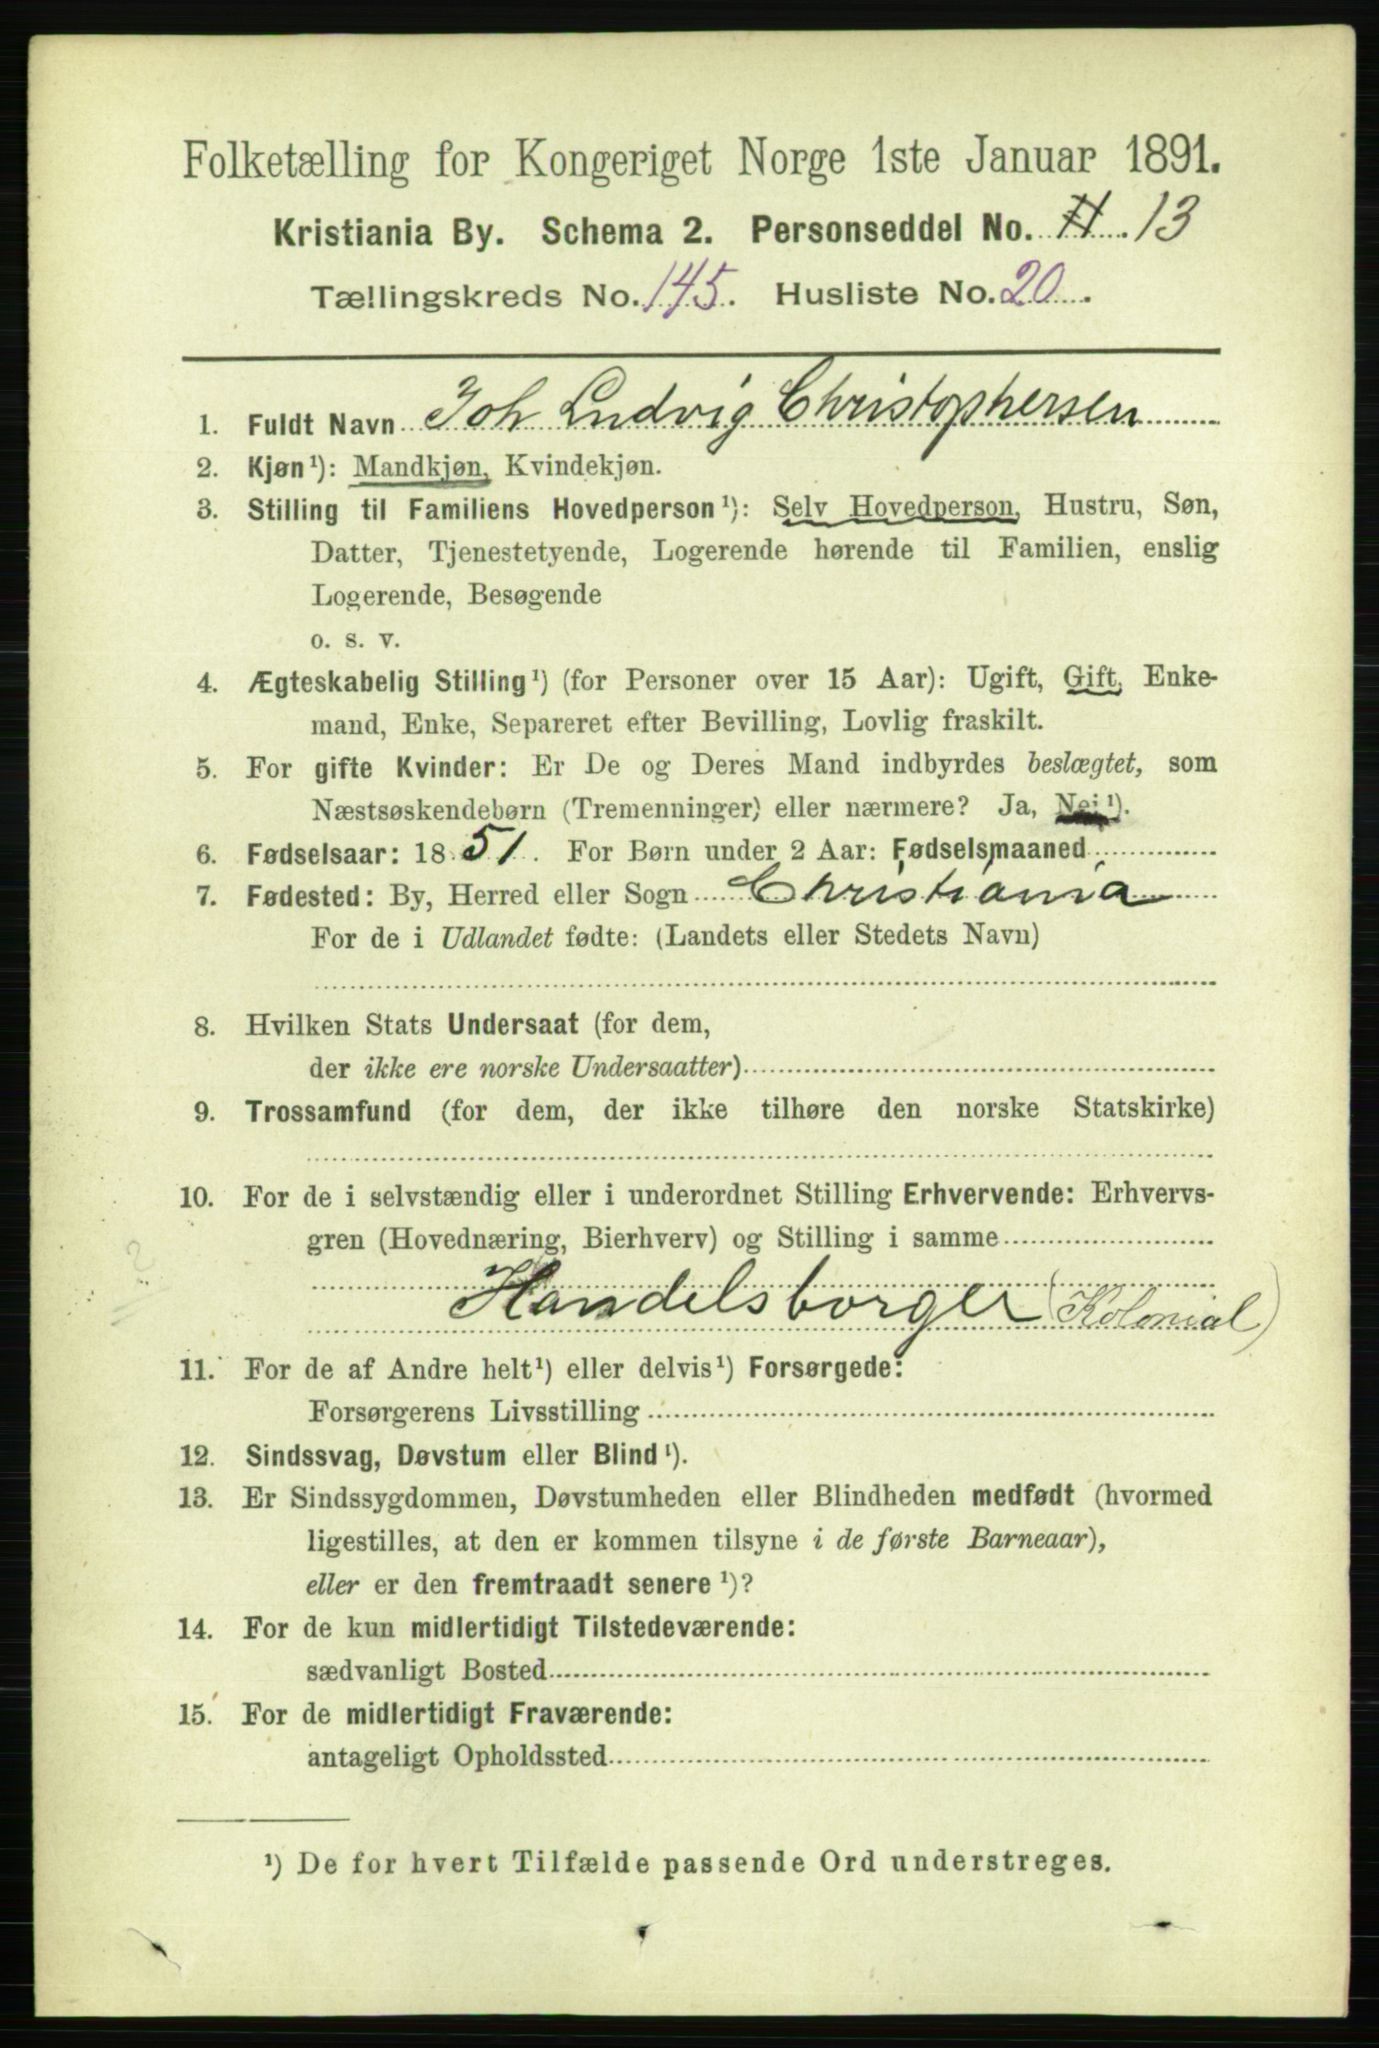 Folketælling for Kongeriget Norge 1ste Januar 1891.
Kristiania By. Schema 2. Personseddel No. 13
Tællingskreds No. 145. Husliste No. 20.
1. Fuldt Navn Joh Ludvig Christophersen
2. Kjøn¹): Mandkjøn, Kvindekjøn.
3. Stilling til Familiens Hovedperson¹): Selv Hovedperson, Hustru, Søn,
Datter, Tjenestetyende, Logerende hørende til Familien, enslig
Logerende, Besøgende
o. s. v.
4. Ægteskabelig Stilling¹) (for Personer over 15 Aar): Ugift, Gift, Enke-
mand, Enke, Separeret efter Bevilling, Lovlig fraskilt.
5. For gifte Kvinder: Er De og Deres Mand indbyrdes beslægtet, som
Næstsøskendebørn (Tremenninger) eller nærmere? Ja, Nei¹).
6. Fødselsaar: 1851. For Børn under 2 Aar: Fødselsmaaned
7. Fødested: By, Herred eller Sogn Christiania
For de i Udlandet fødte: (Landets eller Stedets Navn)
8. Hvilken Stats Undersaat (for dem,
der ikke ere norske Undersaatter)
9. Trossamfund (for dem, der ikke tilhøre den norske Statskirke)
10. For de i selvstændig eller i underordnet Stilling Erhvervende: Erhvervs-
gren (Hovednæring, Bierhverv) og Stilling i samme
Handelsborger (Kolonial)
11. For de af Andre helt¹) eller delvis¹) Forsørgede:
Forsørgerens Livsstilling
12. Sindssvag, Døvstum eller Blind¹).
13. Er Sindssygdommen, Døvstumheden eller Blindheden medfødt (hvormed
ligestilles, at den er kommen tilsyne i de første Barneaar),
eller er den fremtraadt senere¹)?
14. For de kun midlertidigt Tilstedeværende:
sædvanligt Bosted
15. For de midlertidigt Fraværende:
antageligt Opholdssted
¹) De for hvert Tilfælde passende Ord understreges.